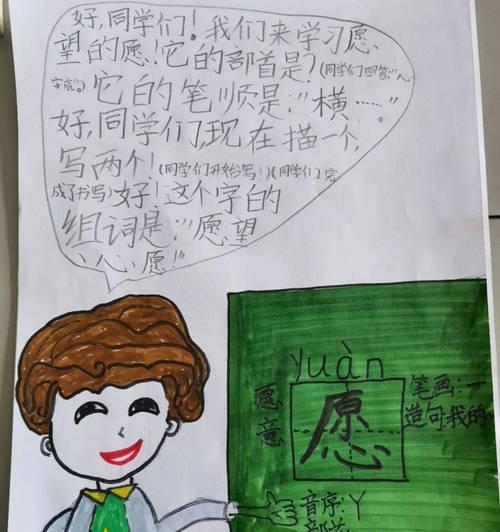 好,同学们!我们来学习愿
望的愿!它的部首是?(同学们回答"心
字底")它的笔顺是:"横……"
好,同学们,现在描一个,
写两个!(同学们开始写!)(同学们完
成了书写)好!这个字的
组词是:"愿望
、心愿!"
yuàn
愿
愿意
笔画:一
造句:我的
音序:Y
部首